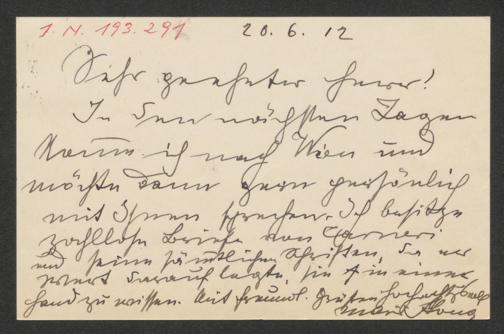 I. N. 193.291
20.6.12
Sehr geehrter Herr!
In den nächsten Tagen
komme ich nach Wien und
möchte dann gern persönlich
mit Ihnen sprechen. Ich besitze
zahllose Briefe von Carneri
und seine sämtlichen Schriften, da er
Wert darauf legte, sie in einer
Hand zu wissen. Mit freundl. Grüßen hochachtungsvoll